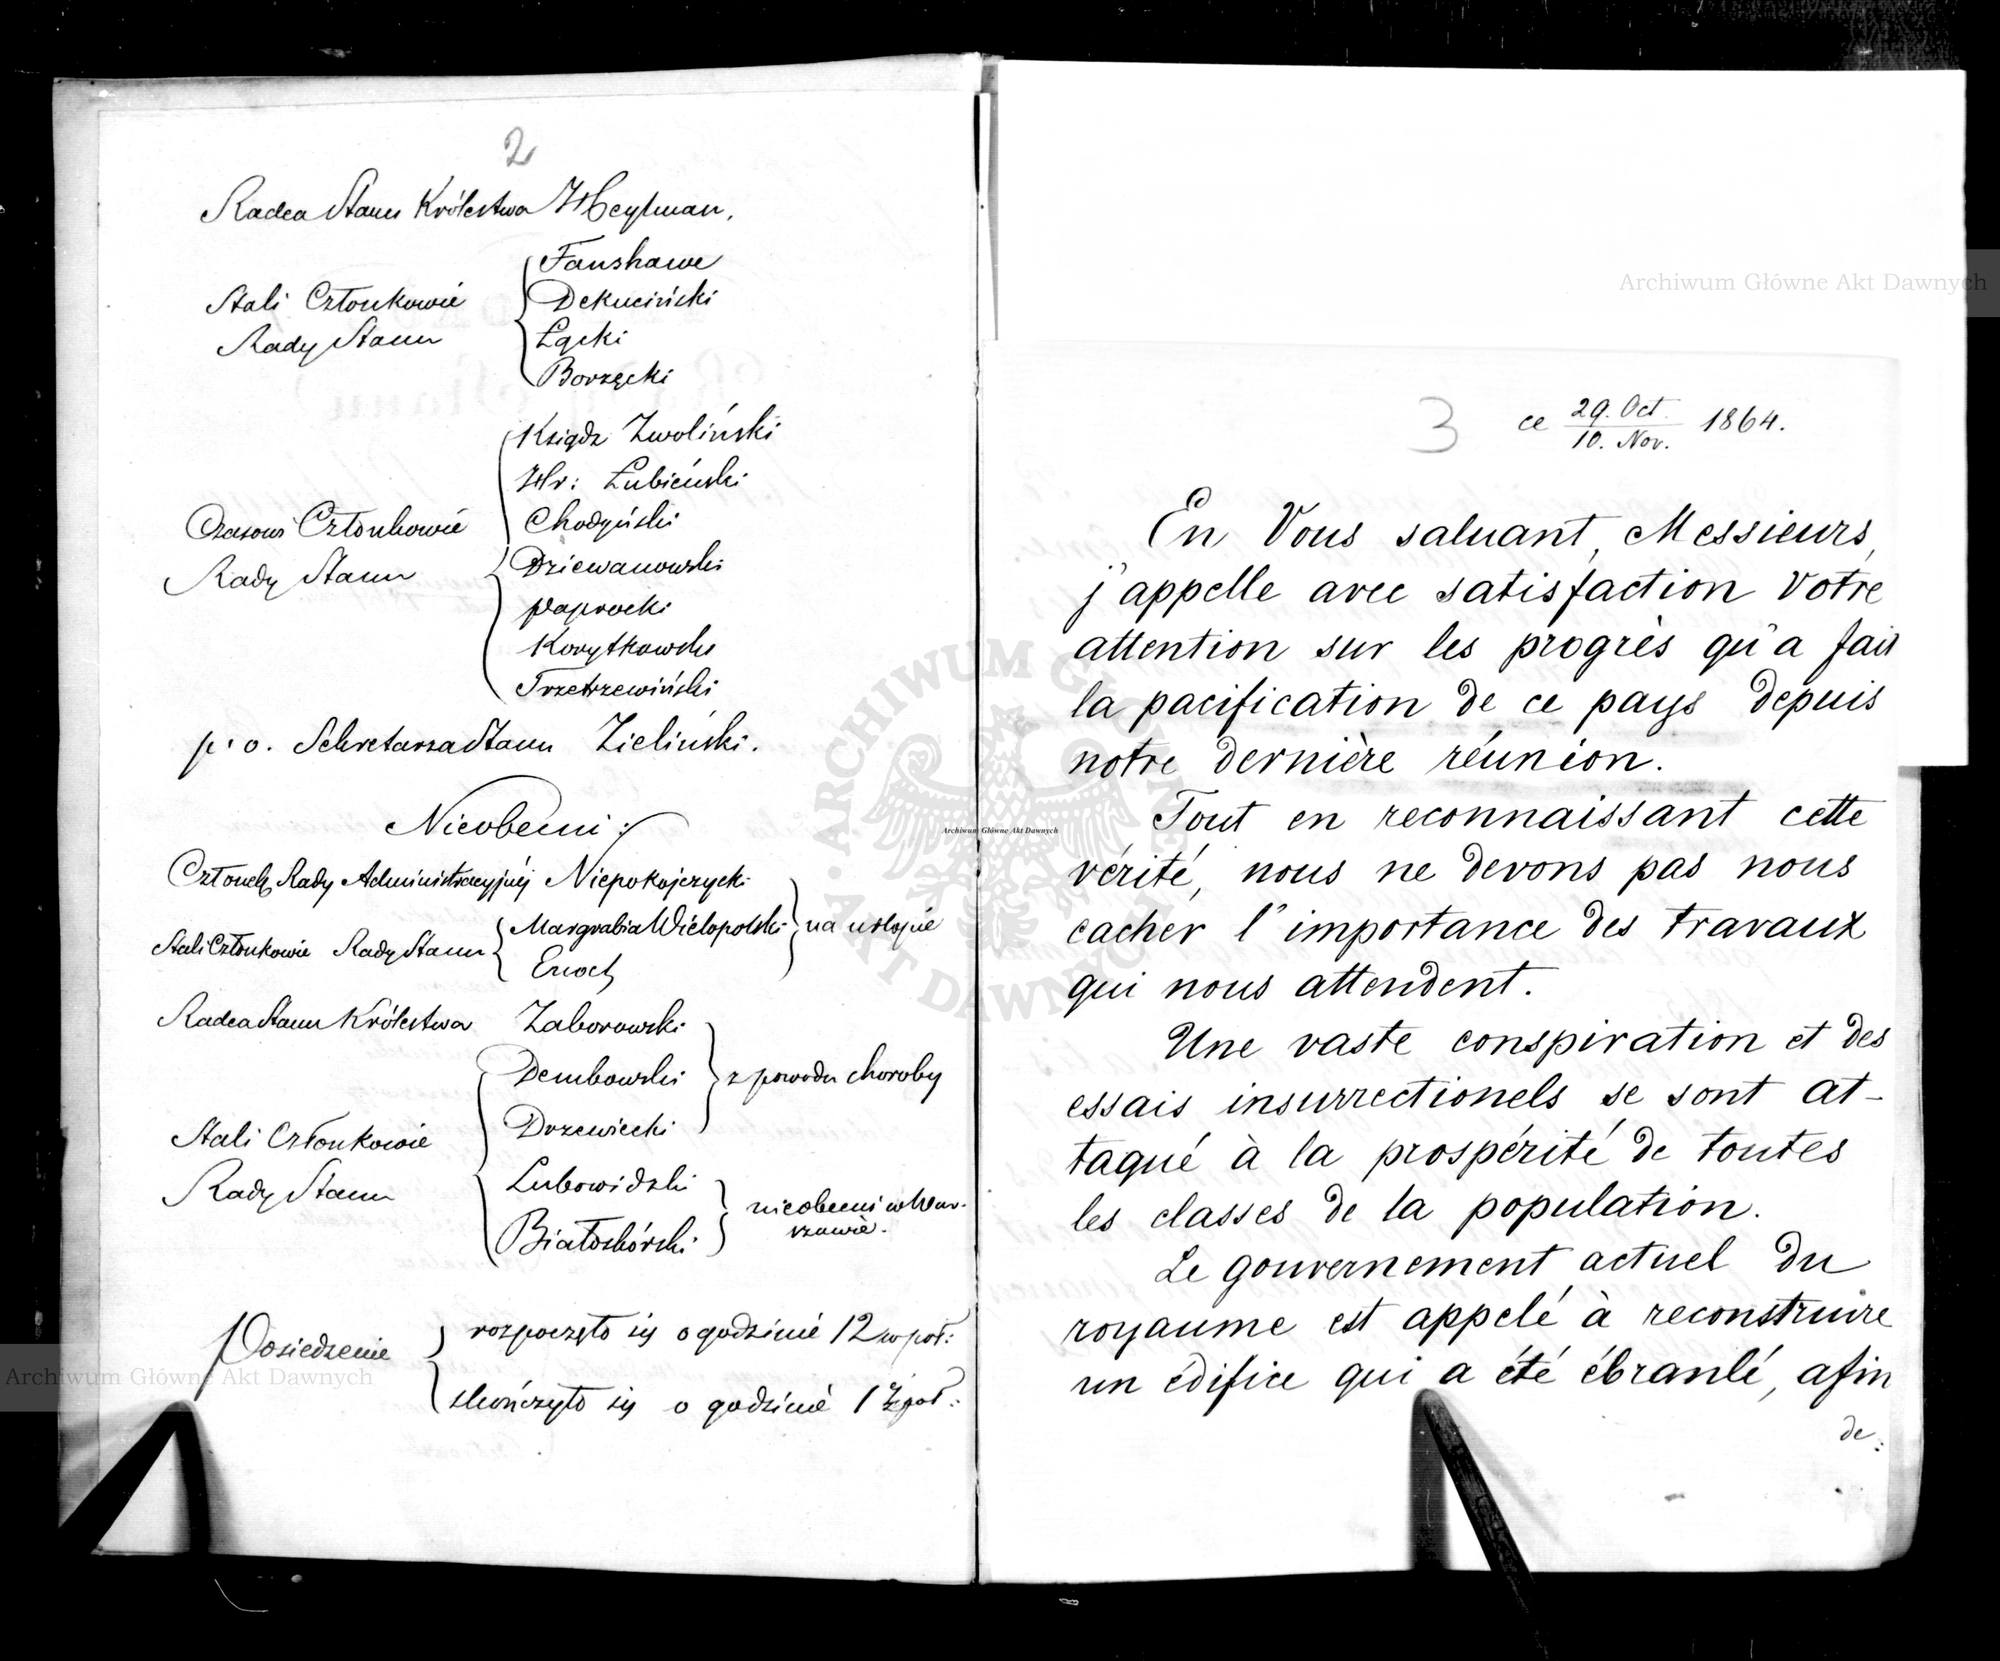 2
Radca Stanu Królestwa Heylman.
Stali Członkowie
Rady Stanu
Fanshawe
Dekuciński
Łącki
Borzęcki
Czasowi Członkowie
Rady Stanu
Ksiądz Zwoliński
Hr: Łubieński
Chodyński
Dziewanowski
Paprocki
Korytkowski
Trzetrzewiński
p. o. Sekretarza Stanu Zieliński.
Nieobecni:
Członek Rady Administracyjnéj Niepokojczycki
Stali Członkowie Rady Stanu
Margrabia Wielopolski
Enoch
na urlopie
Radca Stanu Królestwa Zaborowski
Stali Członkowie
Rady Stanu
Dembowski
Drzewiecki
z powodu choroby
Lubowidzki
Białoskórski
nieobecni w War-
szawie.
Posiedzenie
rozpoczęto się o godzinie 12 w poł:
skończyło się o godzinie 1 z poł:
3
ce 29. Oct. / 10. Nov. 1864.
En Vous saluant, Messieurs,
j'appelle avec satisfaction votre
attention sur les progrès qu'a fait
la pacification de ce pays depuis
notre dernière réunion.
Tout en reconnaissant cette
vérité, nous ne devons pas nous
cacher l'importance des travaux
qui nous attendent.
Une vaste conspiration et des
essais insurrectionels se sont at-
taqué à la prospérité de toutes
les classes de la population.
Le gouvernement actuel du
royaume est appelé à reconstruire
un édifice qui a été ébranlé, afin
de:
Archiwum Główne Akt Dawnych
Archiwum Główne Akt Dawnych
Archiwum Główne Akt Dawnych
ARCHIWUM GŁÓWNE AKT DAWNYCH